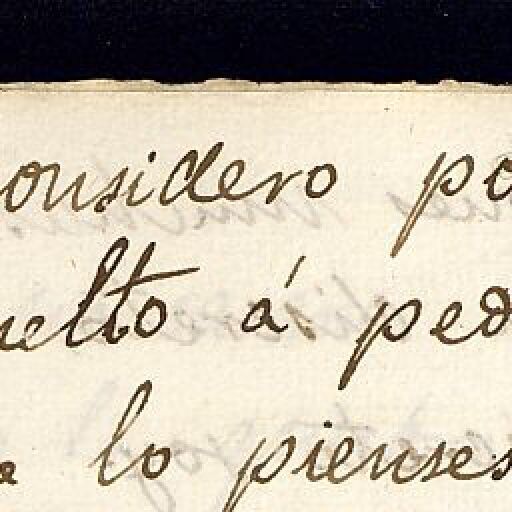 onsidero po
uelto á ped
a lo pienses